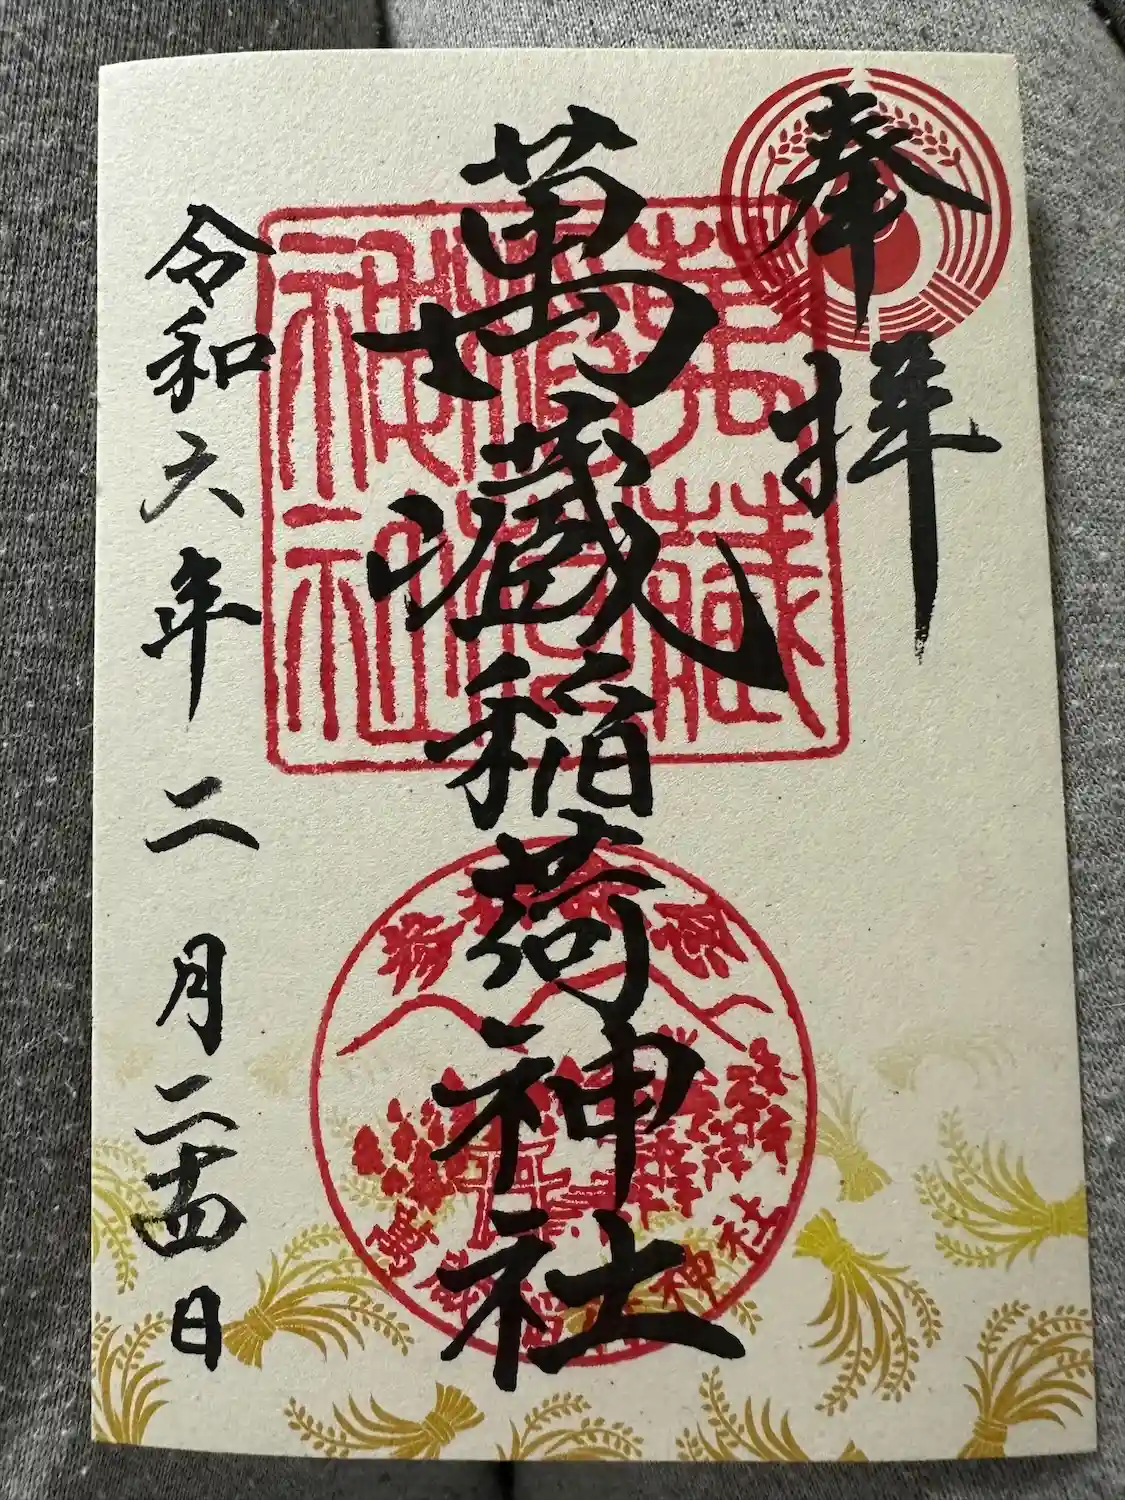 奉拝
萬蔵稲荷神社
令和六年二月二十四日
萬藏稲荷神社
神社